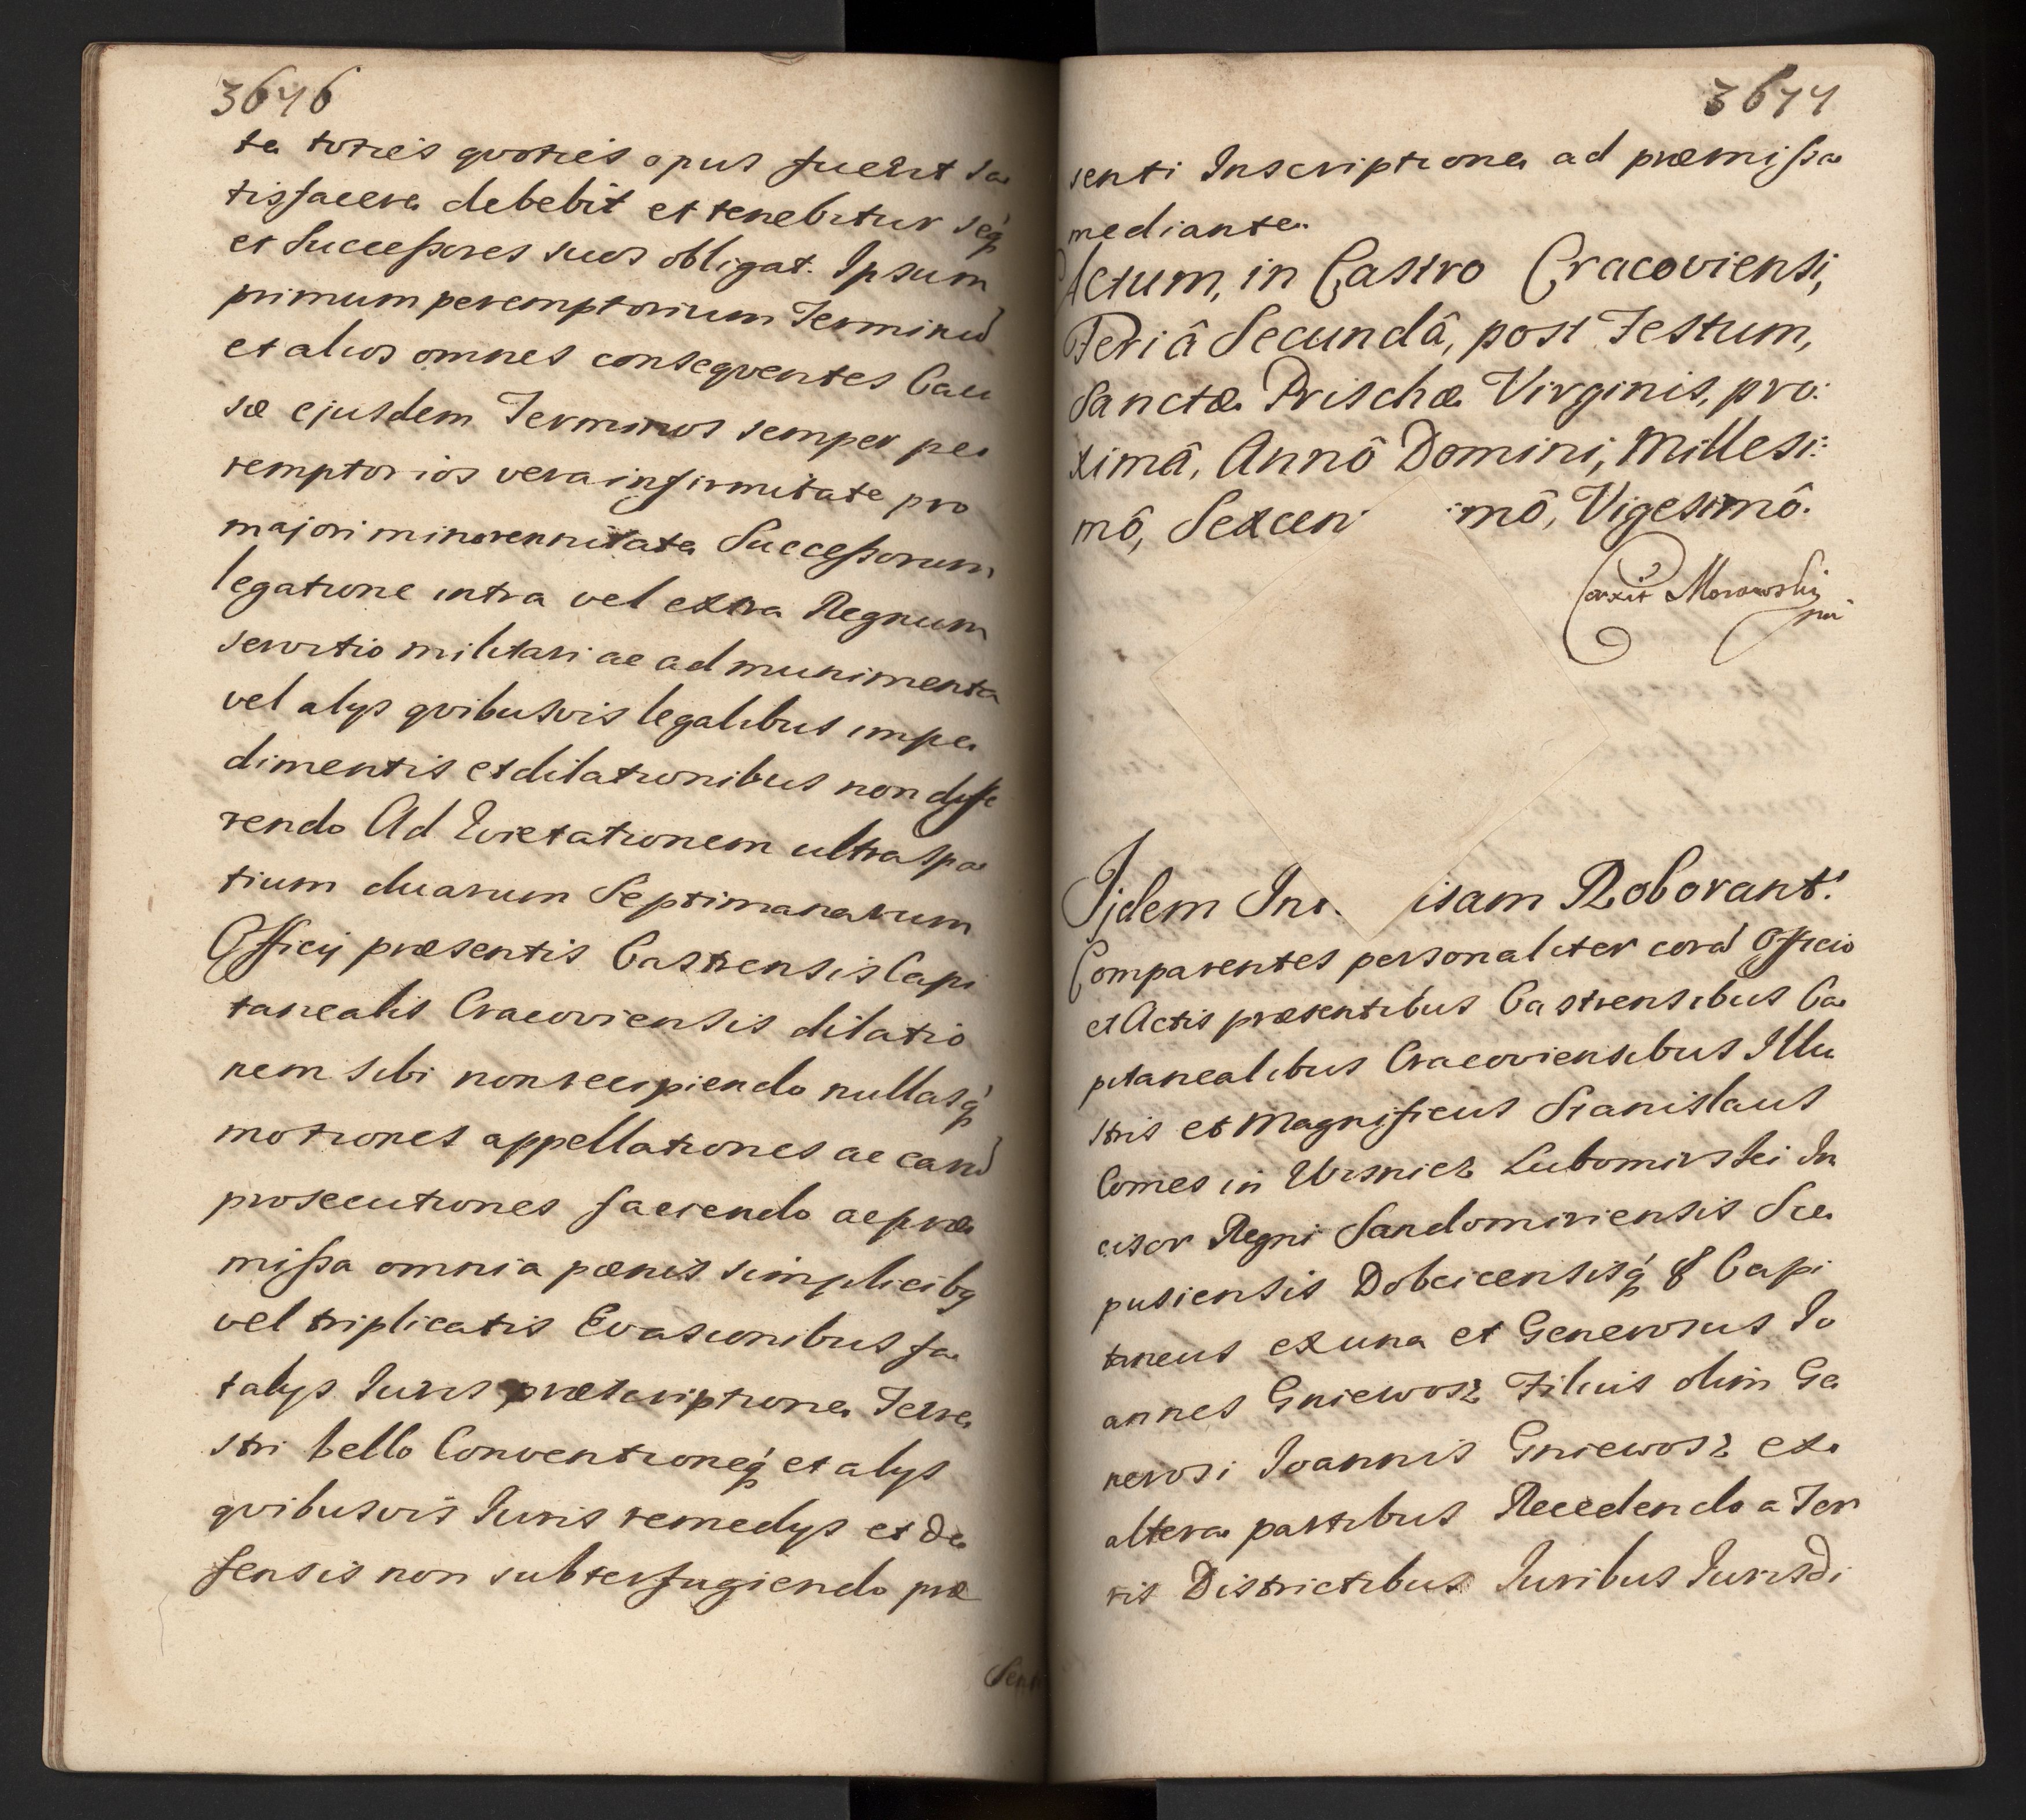 3676
te toties qvoties opus fuerit sa
tisfacere debebit et tenebitur seq́
et Successores suos obligat. Ipsum
primum peremptorium Terminū
et alios omnes conseqventes Cau
sæ ejusdem Terminos semper pe
remptorios vera infirmitate pro
majori minorennitate Successorum
legatione intra vel extra Regnum
servitio militari ac ad munimenta
vel alys qvibusvis legalibus impe
dimentis et dilationibus non diffe
rendo Ad Evictationem ultra spa
tium duarum Septimanarum
Officij præsentis Castrensis Capi
tanealis Cracoviensis dilatio
nem sibi non recipiendo nullasq́
motiones appellationes ac earū
prosecutiones faciendo ac præ
missa omnia pænis simplicibq
vel triplicatis Evasionibus fa
talys Juris præscriptione Terre
stri bello Conventioneq́ et alys
qvibusvis Juris remedys et De
fensis non subterfugiendo præ
3677
senti Inscriptione ad præmissa
mediante.
Actum, in Castro Cracoviensi,
Feriâ Secundâ, post Festum,
Sanctæ Prischæ Virginis, pro:
ximâ, Annô Domini, Millesi:
mô, Sexcen :mô, Vigesimô.
Corxit Morawski
mp
Ijdem Ins. isam Roborant.
Comparentes personaliter corā Officio
et Actis præsentibus Castrensibus Ca
pitanealibus Cracoviensibus Illu
stris et Magnificus Stanislaus
Comes in Wisnicz Lubomirski In
cisor Regni Sandomiriensis Sce
pusiensis Dobcicensisq́ & Capi
taneus ex una et Generosus Jo
annes Gniewosz Filius olim Ge
nerosi Joannis Gniewosz ex
altera partibus Recedendo a Ter
ris Districtibus Juribus Jurisdi